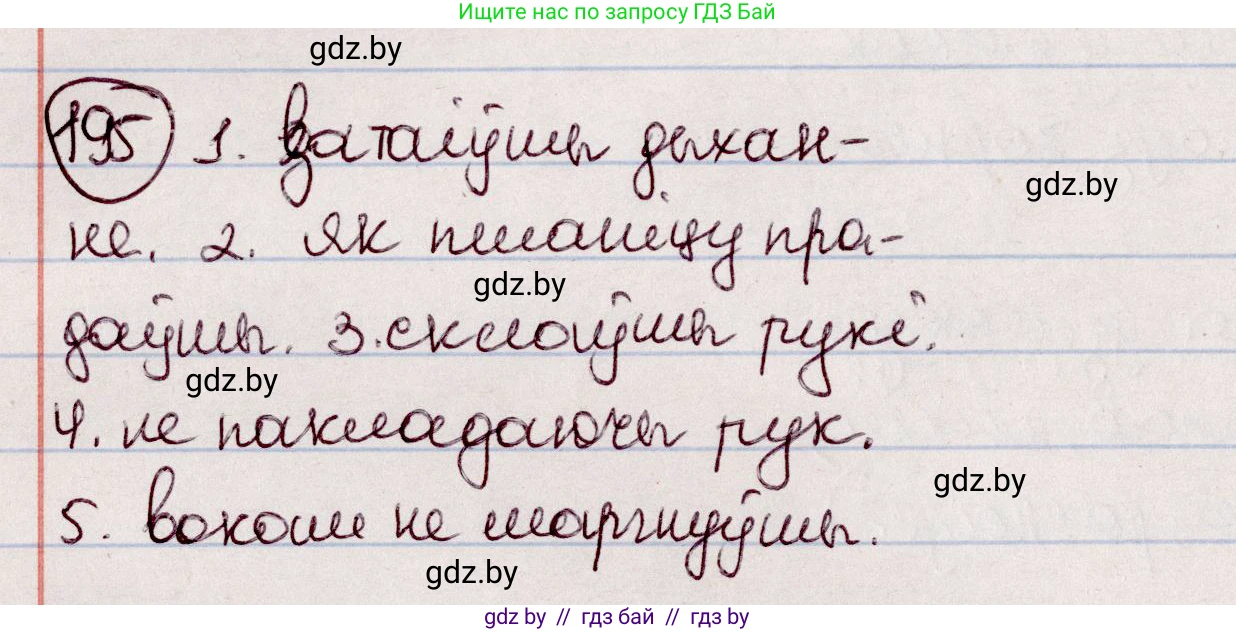 Ищите нас по запросу ГДЗ Бай
gdz.by
195 1. Затаіўшы дыхан-
gdz.by
не. 2. Як пшаніцу пра-
gdz.by
даўшы. 3. склаўшы рукі.
gdz.by
4. не пакладаючы рук.
gdz.by
5. вокам не маргнуўшы.
gdz.by
gdz by // гдз бай // gdz by